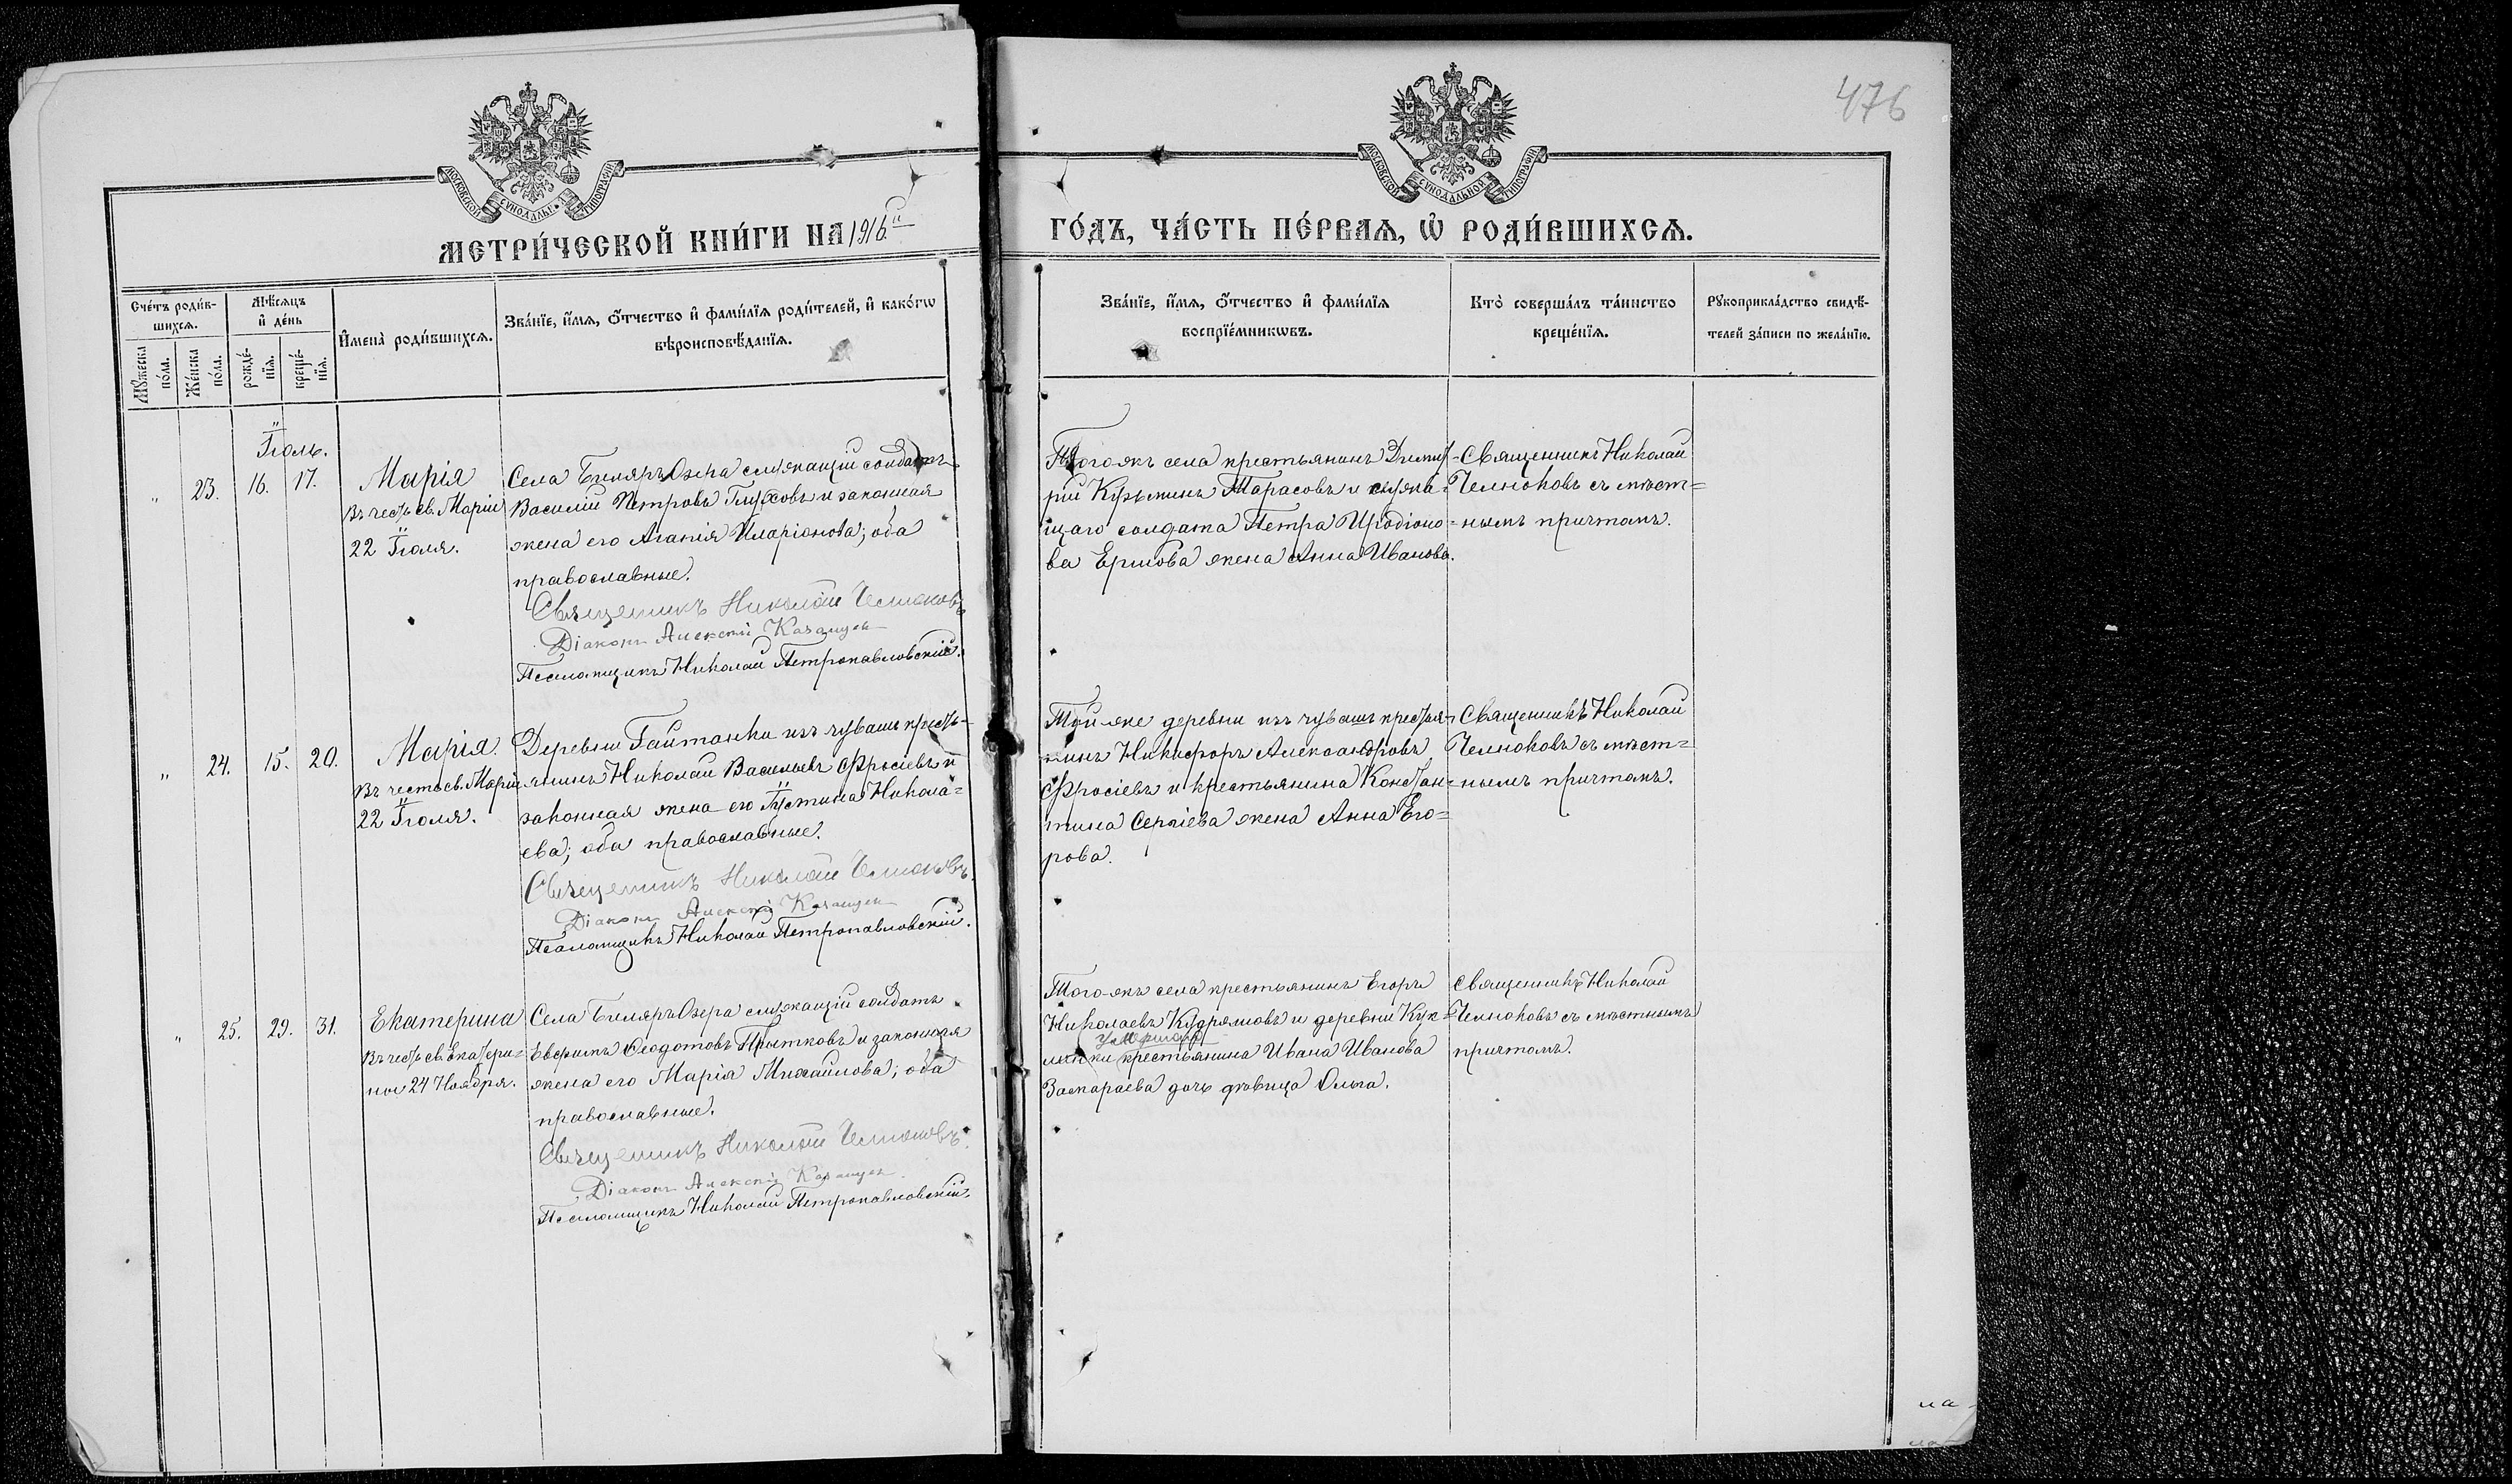 476
МОСКОВСКОЙ СѴНОДАЛЬНОЙ ТИПОГРАФІИ
МОСКОВСКОЙ СѴНОДАЛЬНОЙ ТИПОГРАФІИ
МЕТРИ́ЧЕСКОЙ КНИ́ГИ НА 1916й
ГО́ДЪ, ЧА́СТЬ ПЕ́РВАѦ, Ѽ РОДИ́ВШИХСѦ.
Сче́тъ роди́в-
шихсѧ.
Мꙋ́жеска по́ла.
Же́нска по́ла.
Мѣ́сѧцъ
и҆ де́нь
рожде́-
нїѧ.
креще́-
нїѧ.
И҆мена̀ роди́вшихсѧ.
Зва́нїе, и҆́мѧ, ѻ҆́тчество и҆ фами́лїѧ роди́телей, и҆ како́гѡ
вѣроисповѣ́данїѧ.
Зва́нїе, и҆́мѧ, ѻ҆́тчество и҆ фами́лїѧ
воспрїе́мникѡвъ.
Кто̀ соверша́лъ та́инство
креще́нїѧ.
Рꙋкоприкла́дство свидѣ́-
телей за́писи по жела́нїю.
Іюль.
" 23. 16. 17.
Марія
Въ честь св. Маріи
22 Іюля.
Села Биляръ Озера служащій солдатъ
Василій Петровъ Глуховъ и законная
жена его Агапія Иларіонова; оба
православные.
Священникъ Николай Челноковъ
Діаконъ Алексій Казанцев
Псаломщикъ Николай Петропавловскій.
Того-жъ села крестьянинъ Димит-
рій Кузьминъ Тарасовъ и служа-
щаго солдата Петра Иродіоно-
ва Ершова жена Анна Иванова.
Священникъ Николай
Челноковъ съ мѣст=
нымъ причтомъ.
" 24. 15. 20.
Марія.
Въ честь св. Маріи
22 Іюля.
Деревни Гайтанки изъ чувашъ кресть-
янинъ Николай Васильевъ Фросіевъ и
законная жена его Іустина Никола=
ева; оба православные.
Священникъ Николай Челноковъ.
Діаконъ Алексій Казанцев
Псаломщикъ Николай Петропавловскій.
Той-же деревни изъ чувашъ крестья-
нинъ Никифоръ Александровъ
Фросіевъ и крестьянина Констан-
тина Сергіева жена Анна Его=
рова.
Священникъ Николай
Челноковъ съ мѣст=
нымъ причтомъ.
" 25. 29. 31.
Екатерина
Въ честь св. Екатери-
ны 24 Ноября.
Села Биляръ Озера служащій солдатъ
Ѳеодотовъ и законная
жена его Марія Михайлова; оба
православные.
Священникъ Николай Челноковъ.
Діаконъ Алексій Казанцев
Псаломщикъ Николай Петропавловскій.
Того-жъ села крестьянинъ Егоръ
Николаевъ Кудряшовъ и деревни Кук-
умершаго
линки крестьянина Ивана Иванова
дочь дѣвица Ольга.
Священникъ Николай
Челноковъ съ мѣстнымъ
причтомъ.